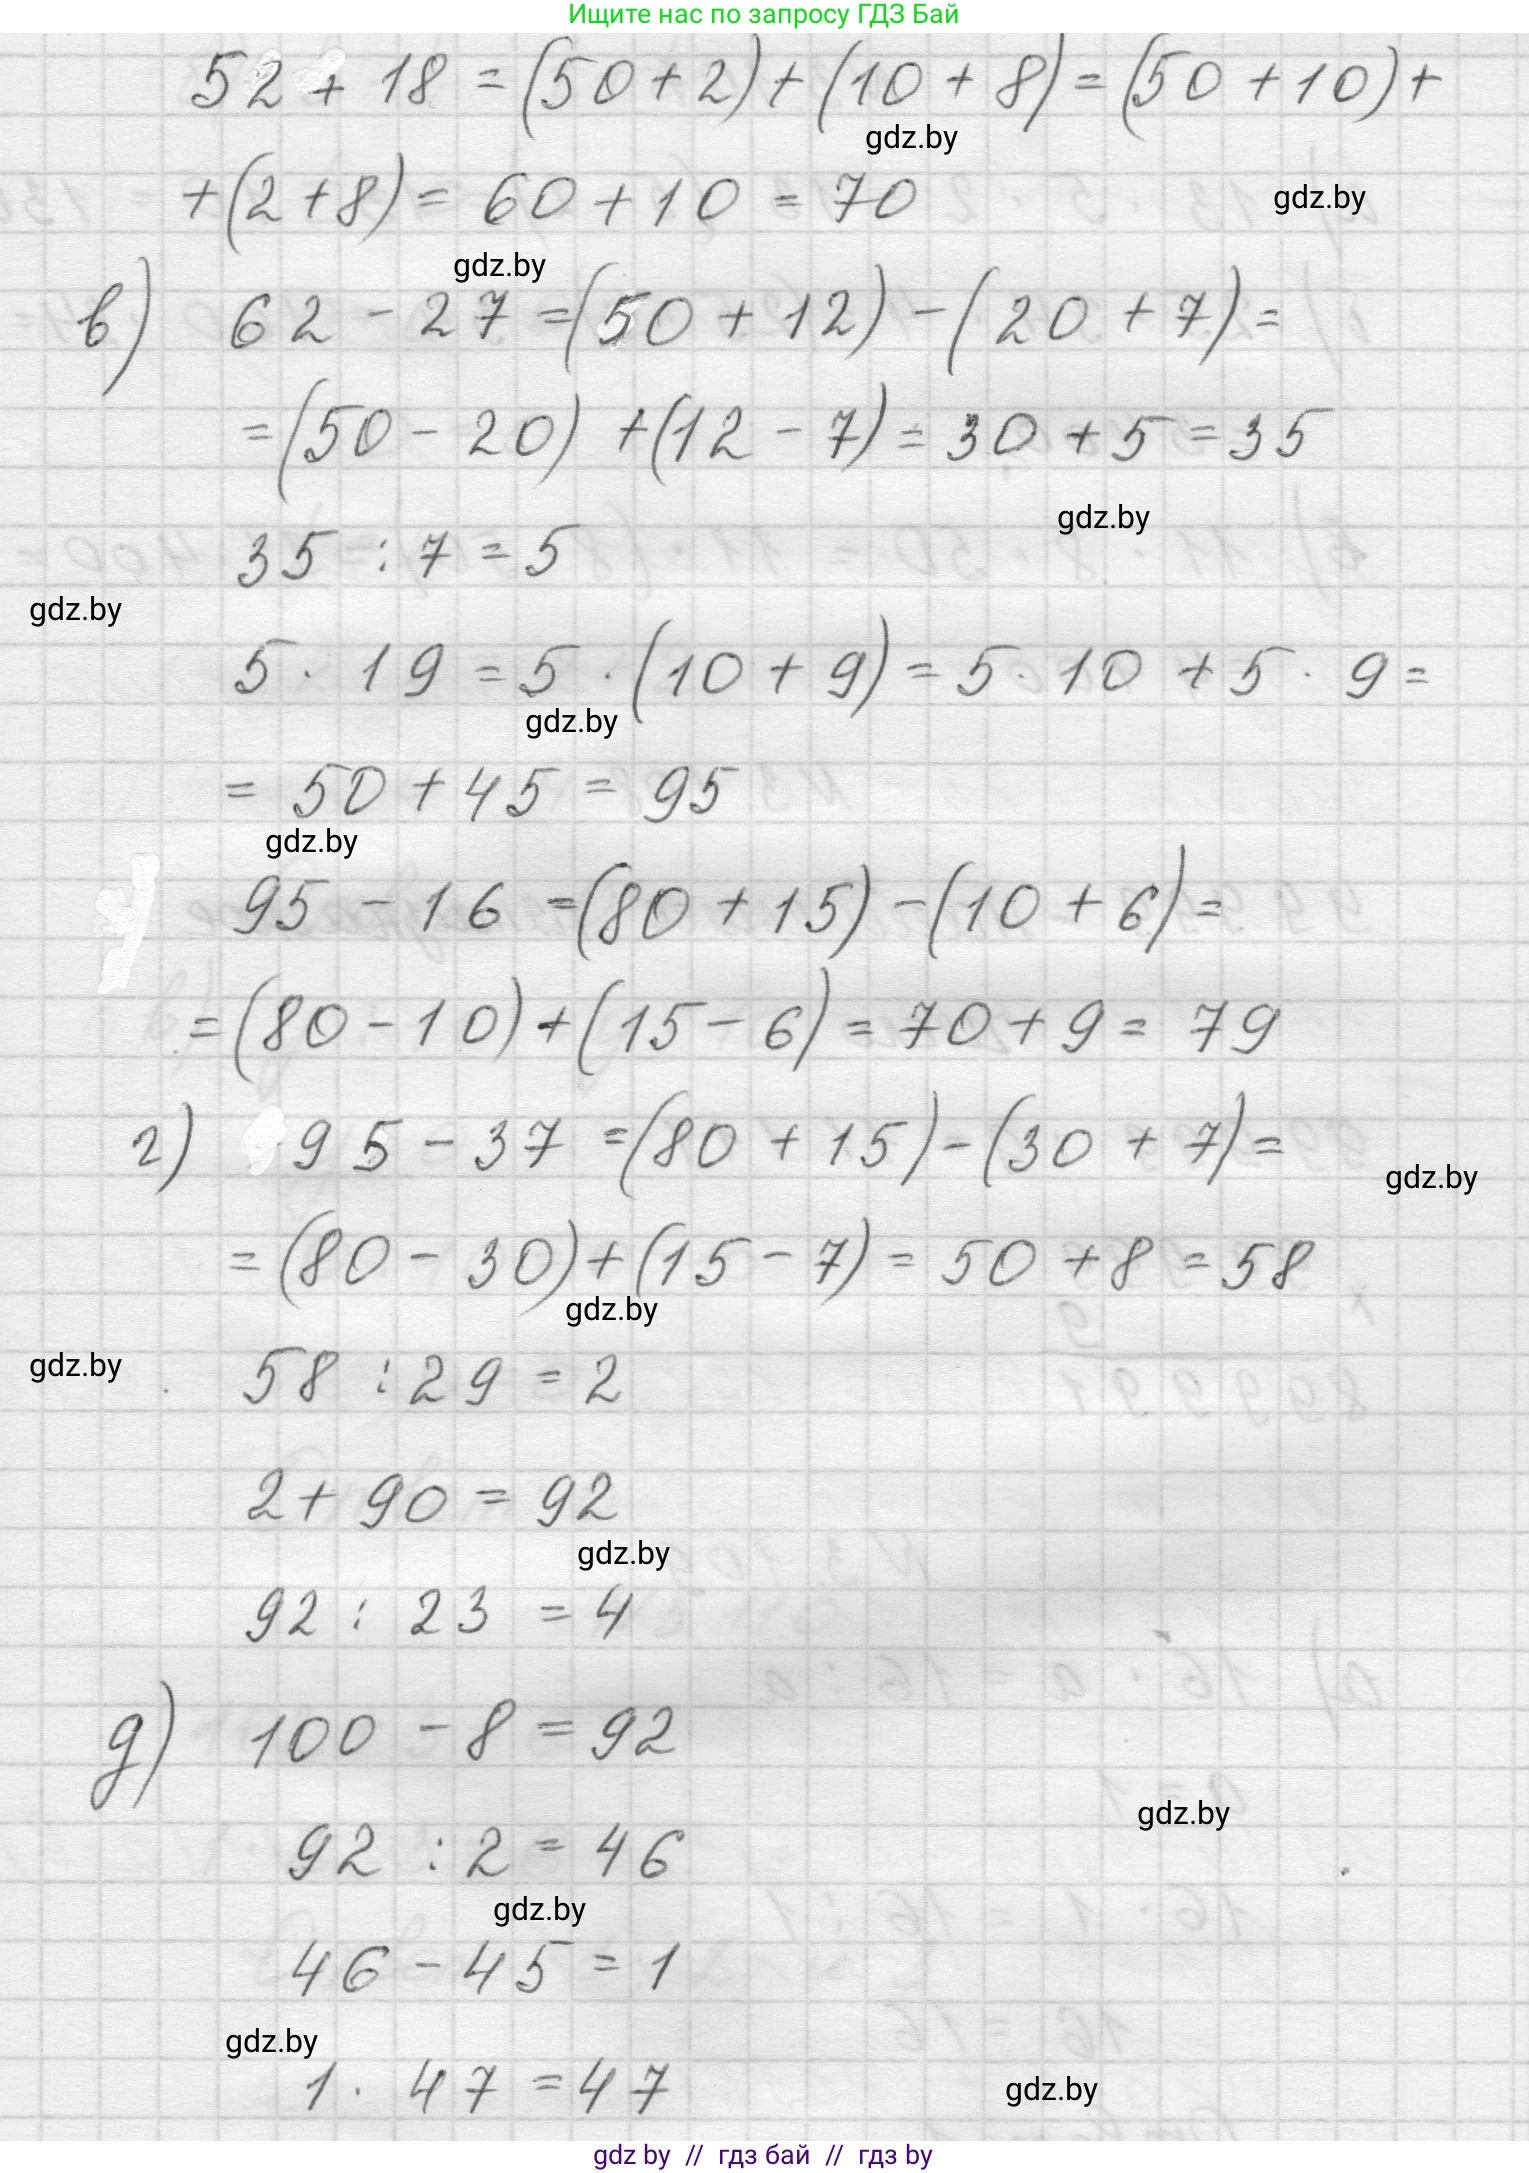 Ищите нас по запросу ГДЗ Бай
52 + 18 = (50 + 2) + (10 + 8) = (50 + 10) +
gdz.by
+ (2 + 8) = 60 + 10 = 70
gdz.by
gdz.by
в) 62 - 27 = (50 + 12) - (20 + 7) =
= (50 - 20) + (12 - 7) = 30 + 5 = 35
gdz.by
35 : 7 = 5
gdz.by
5 · 19 = 5 · (10 + 9) = 5 · 10 + 5 · 9 =
gdz.by
= 50 + 45 = 95
gdz.by
95 - 16 = (80 + 15) - (10 + 6) =
= (80 - 10) + (15 - 6) = 70 + 9 = 79
г) 95 - 37 = (80 + 15) - (30 + 7) =
gdz.by
= (80 - 30) + (15 - 7) = 50 + 8 = 58
gdz.by
gdz.by
58 : 29 = 2
2 + 90 = 92
gdz.by
92 : 23 = 4
д) 100 - 8 = 92
gdz.by
92 : 2 = 46
gdz.by
46 - 45 = 1
gdz.by
1 · 47 = 47
gdz.by
gdz by // гдз бай // гдз by